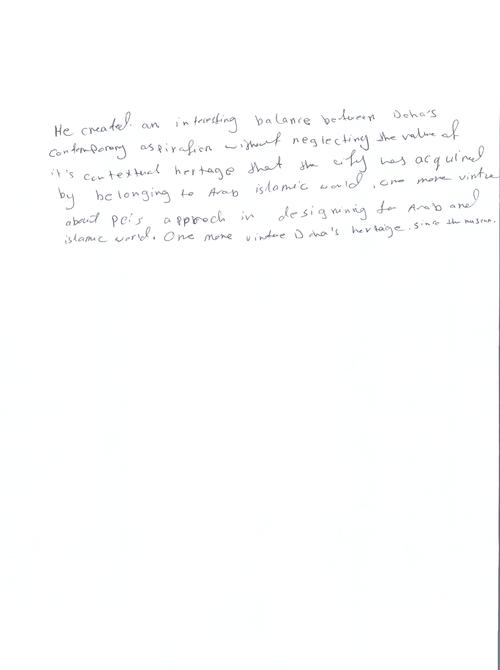 He created an interesting balance between Doha's
contemporary aspiration without neglecting the value of
it's contextual heritage that the city has acquired
by belonging to Arab islamic world, one more virtue
about Pei's approch in designing for Arab and
islamic world. One more virtue Doha's heritage. Since the museum.